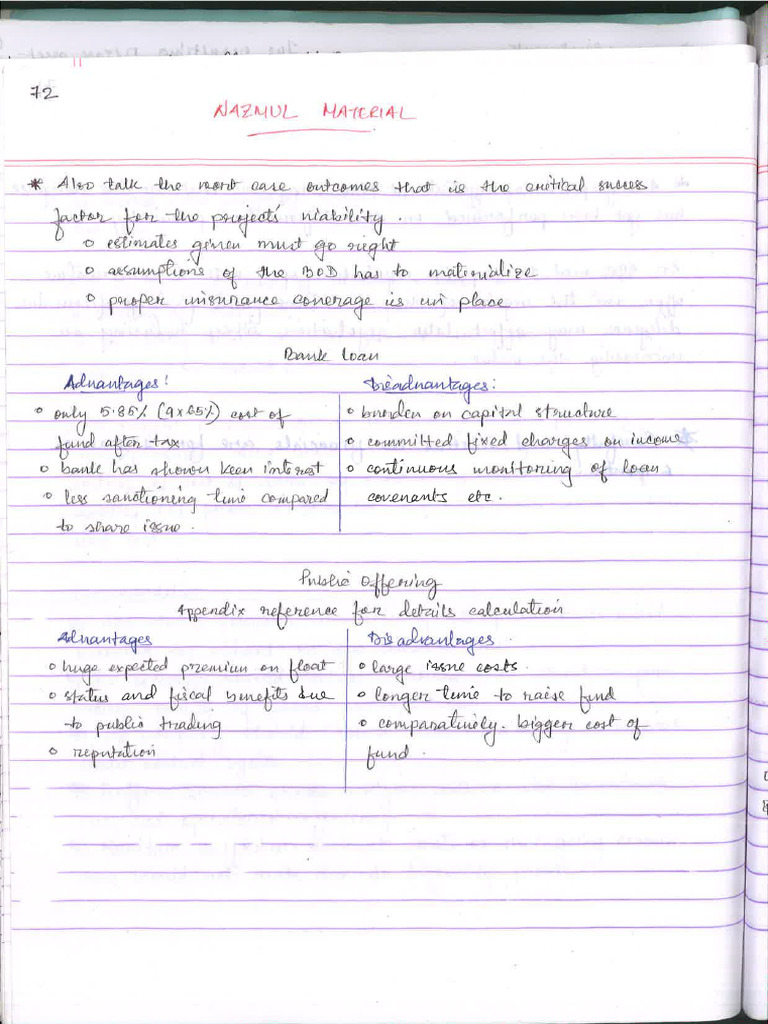 72
NAZMUL MATERIAL
* Also talk the worst case outcomes that is the critical success
factor for the projects' viability.
o estimates given must go right
o assumptions of the BOD has to materialize
o proper insurance coverage is in place
Bank Loan
Advantages:
o only 5.85% (9x65%) cost of
fund after tax
o bank has shown keen interest
o less sanctioning time compared
to share issue.
Disadvantages:
o burden on capital structure
o committed fixed charges on income
o continuous monitoring of loan
covenants etc.
Public Offering
Appendix reference for details calculation
Advantages
o huge expected premium on float
o status and fiscal benefits due
to public trading
o reputation
Disadvantages.
o large issue costs.
o longer time to raise fund
o comparatively bigger cost of
fund.